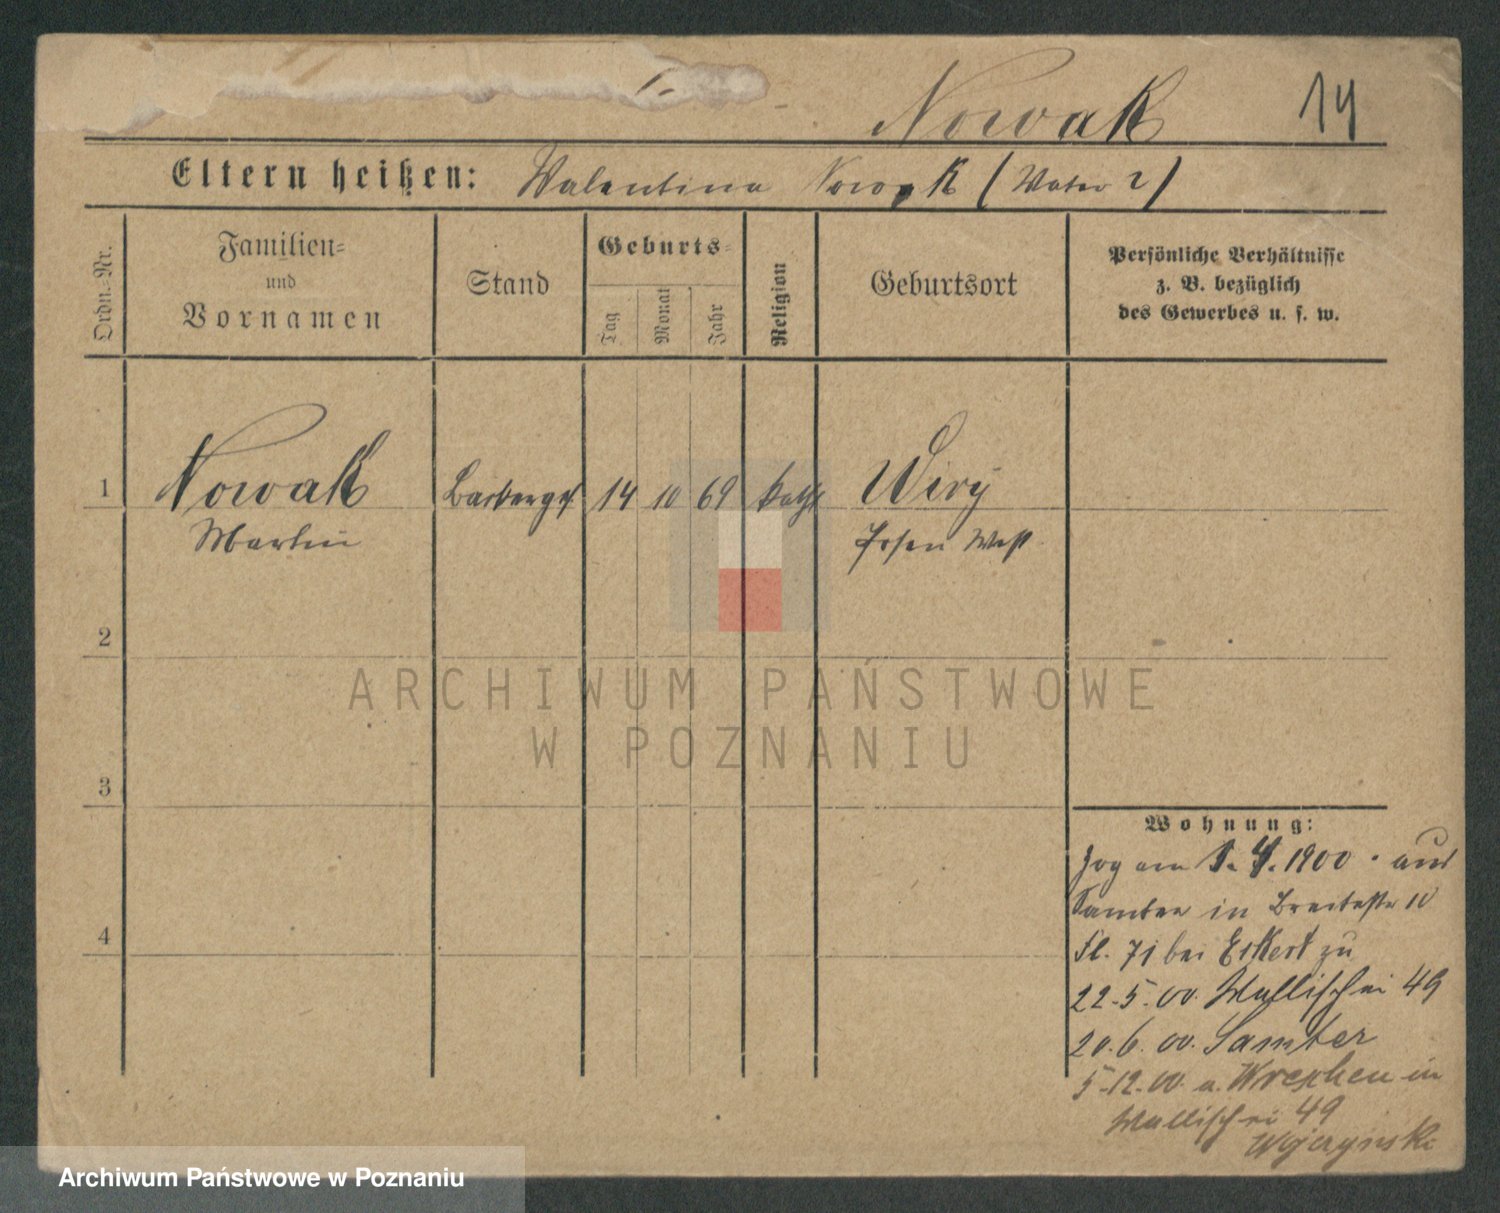 Nowak 14
Eltern heißen: Walentina Nowak (Vater ?)
Ordn.-Nr.
Familien- und Vornamen
Stand
Geburts-
Tag
Monat
Jahr
Religion
Geburtsort
Persönliche Verhältnisse
z. B. bezüglich
des Gewerbes u. s. w.
1 Nowak 14 10 69 kath Wiry
Martin Posen West
2
3
4
ARCHIWUM PAŃSTWOWE
W POZNANIU
Wohnung:
Zog am 1.4.1900. aus
Samter in Breitestr 10
bei Eckert zu
22.5.00. Wallischei 49
20.6.00. Samter
5.12.00. a. Wreschen in
Wallischei 49
Archiwum Państwowe w Poznaniu